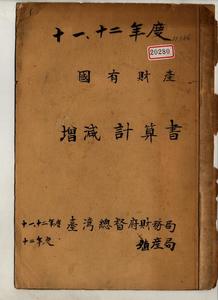 十一、十二年度
20280
國有財產
增減計算書
十一、十二年度 臺灣總督府財務局
十二年度 殖產局